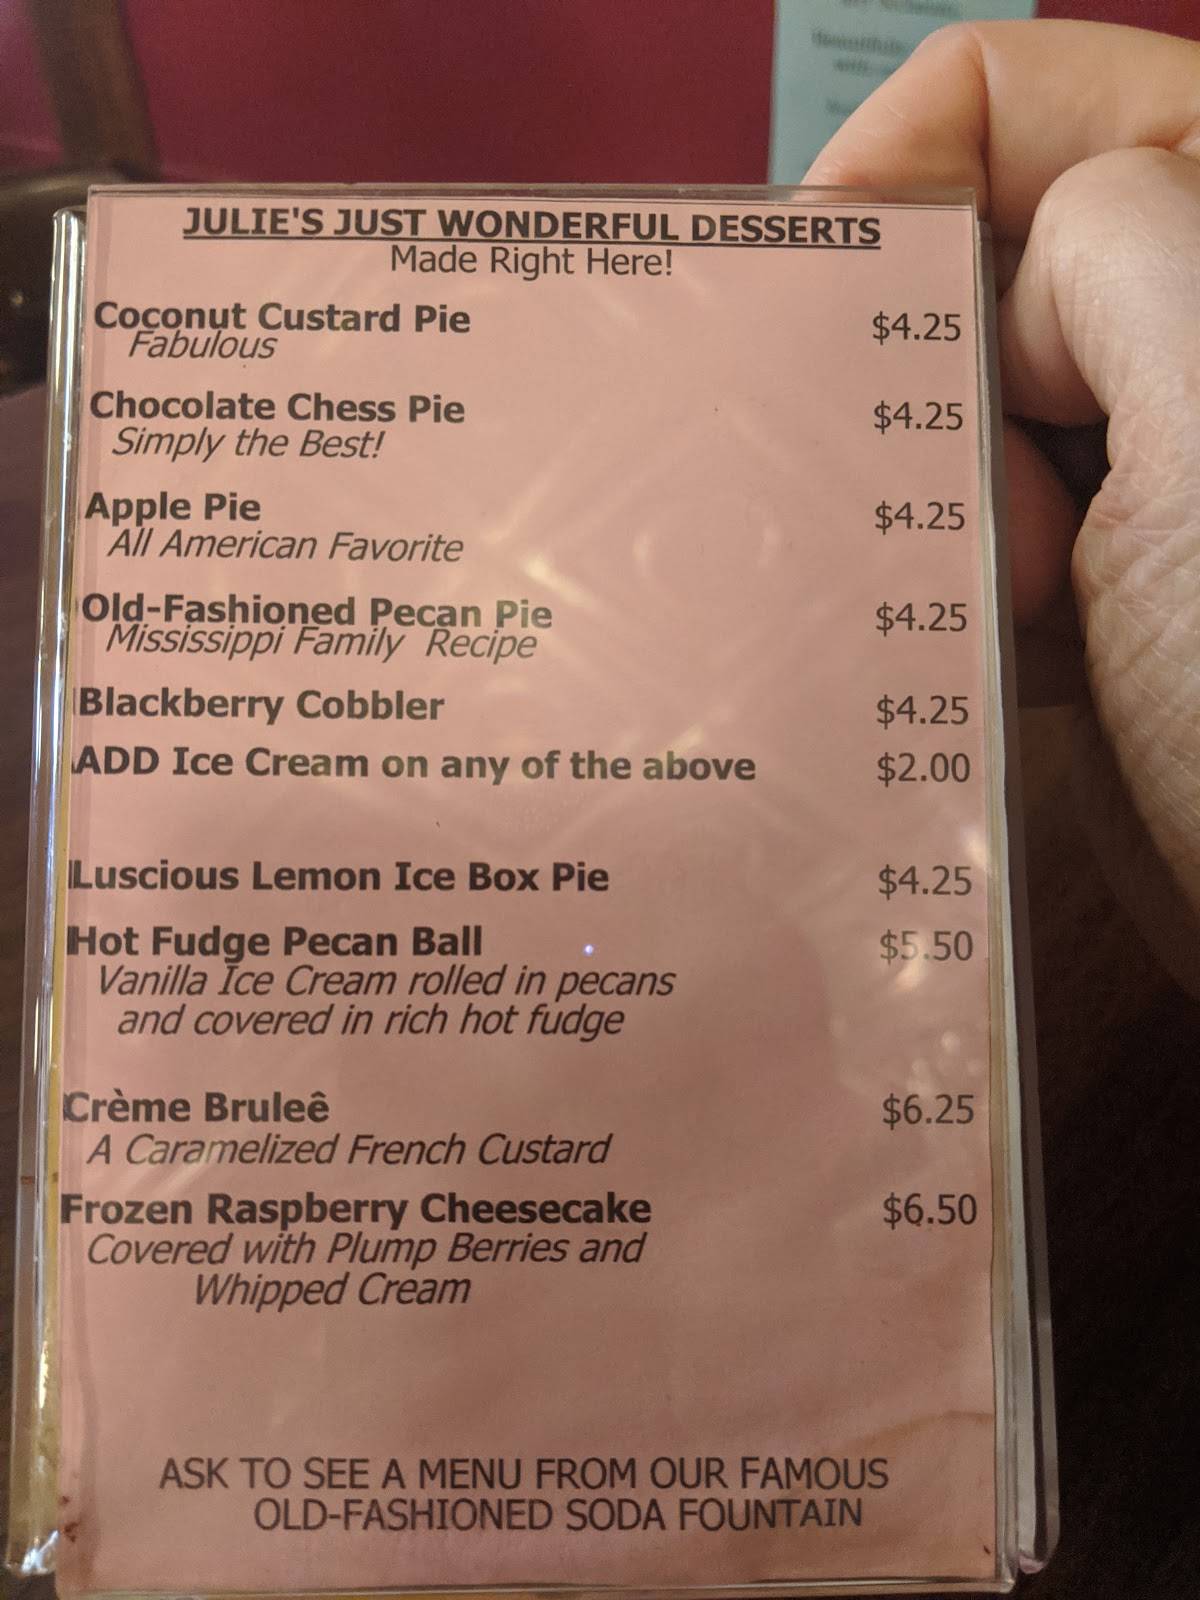 JULIE'S JUST WONDERFUL DESSERTS
Made Right Here!
Coconut Custard Pie $4.25
Fabulous
Chocolate Chess Pie $4.25
Simply the Best!
Apple Pie $4.25
All American Favorite
Old-Fashioned Pecan Pie $4.25
Mississippi Family Recipe
Blackberry Cobbler $4.25
ADD Ice Cream on any of the above $2.00
Luscious Lemon Ice Box Pie $4.25
Hot Fudge Pecan Ball $5.50
Vanilla Ice Cream rolled in pecans
and covered in rich hot fudge
Crème Bruleê $6.25
A Caramelized French Custard
Frozen Raspberry Cheesecake $6.50
Covered with Plump Berries and
Whipped Cream
ASK TO SEE A MENU FROM OUR FAMOUS
OLD-FASHIONED SODA FOUNTAIN